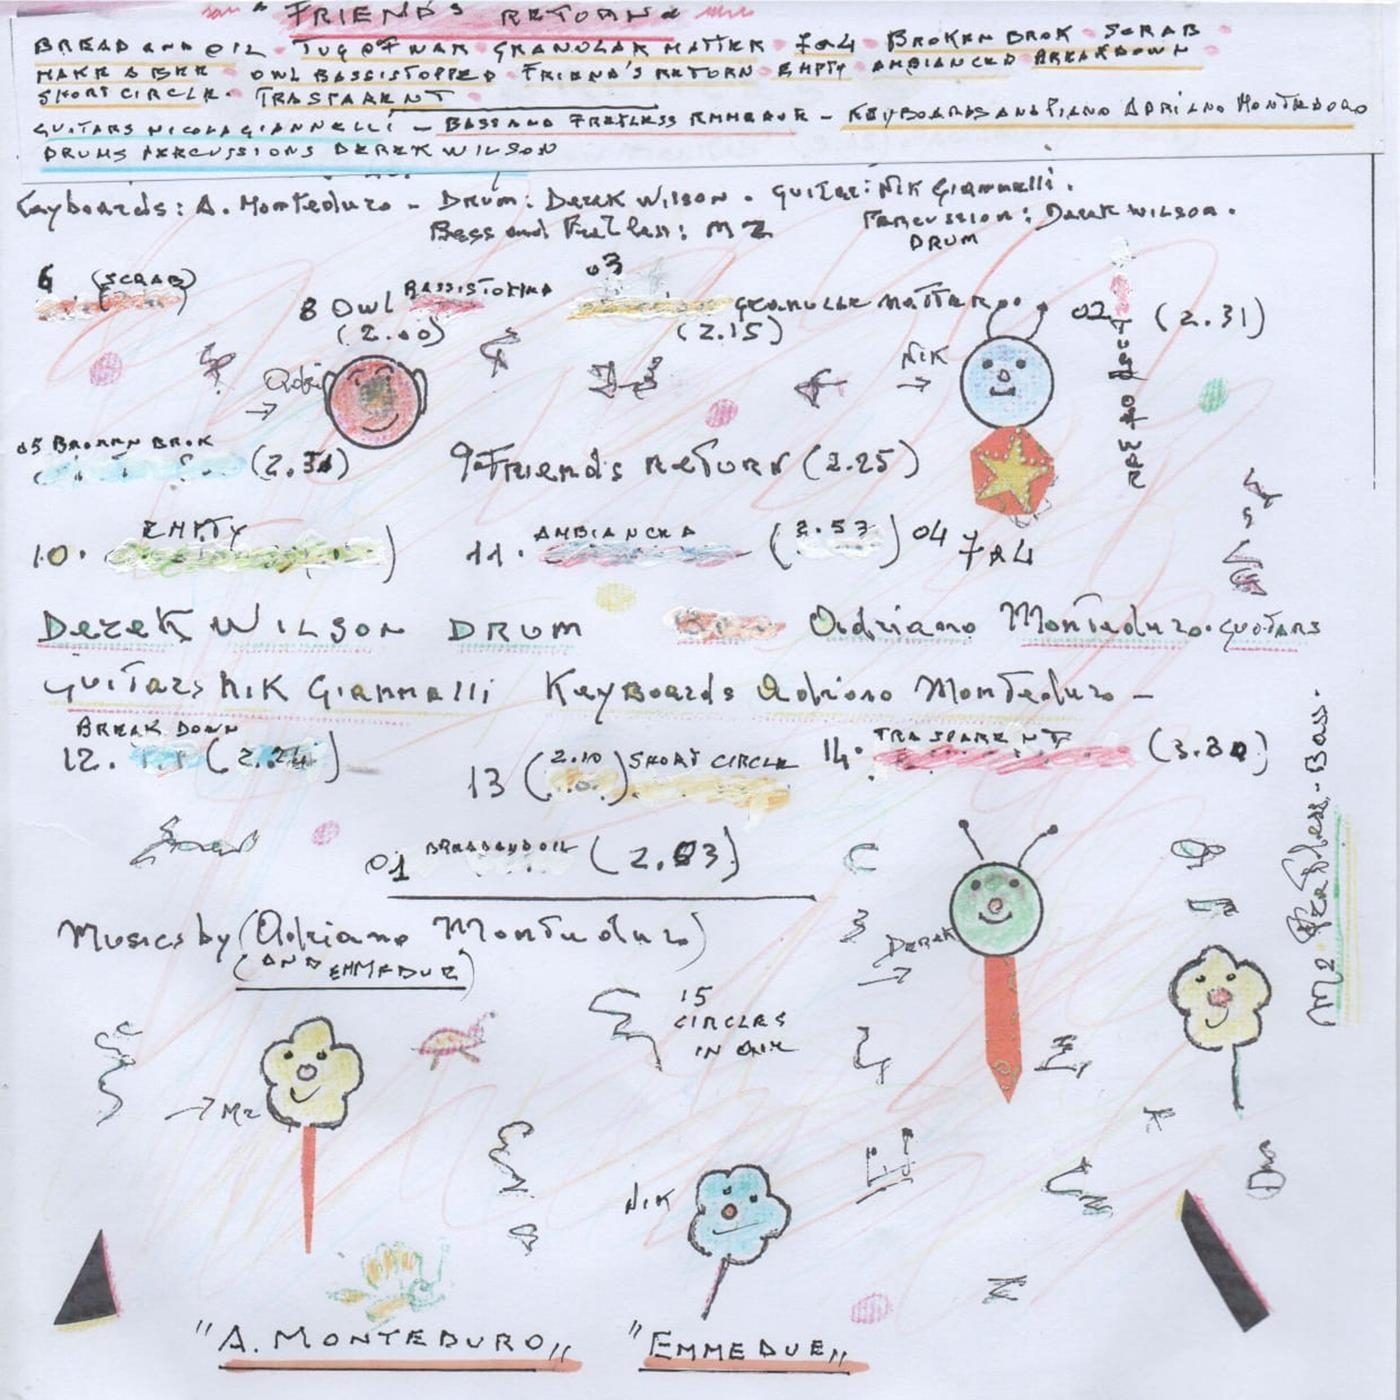 "FRIEND'S RETURN"
BREAD AND OIL • TUG OF WAR • GRANULAR MATTER • 7 a 4 • BROKEN BROK • SCRAB •
MAKE A BEE • OWL BASSISTOPPED • FRIEND'S RETURN • EMPTY • AMBIANCED • BREAKDOWN •
SHORT CIRCLE • TRASPARENT •
GUITARS NICOLA GIANNELLI - BASS AND FRETLESS EMMEDUE - KEYBOARDS AND PIANO ADRIANO MONTEDURO
DRUMS PERCUSSIONS DEREK WILSON
Keyboards: A. Monteduro - Drum: Derek Wilson. guitar: Nik Giannelli.
Bass and Fretless: M2
Percussion: Derek Wilson.
DRUM
6 (SCRAB)
8 Owl
(2.00)
03
GRANULAR MATTER
(2.15)
02 TUG OF WAR (2.31)
Adri
NIK
05 BROKEN BROK
9 Friend's RETURN (2.25)
10. EMPTY
11. (2.53)
04 7 a 4
DEREK WILSON DRUM
Adriano Monteduro. GUITARS
GUITARS NIK GIANNELLI
KeyBoards Adriano Monteduro -
12. BREAK DOWN (2.24)
13 (2.10) SHORT CIRCLE
14. TRASPARENT
01 BREADANDOIL
Musics by (Adriano Monteduro)
(AND EMMEDUE)
15
CIRCLES
IN ONE
DEREK
M2 Fretless - Bass.
M2
NIK
"A. MONTEDURO"
"EMMEDUE"